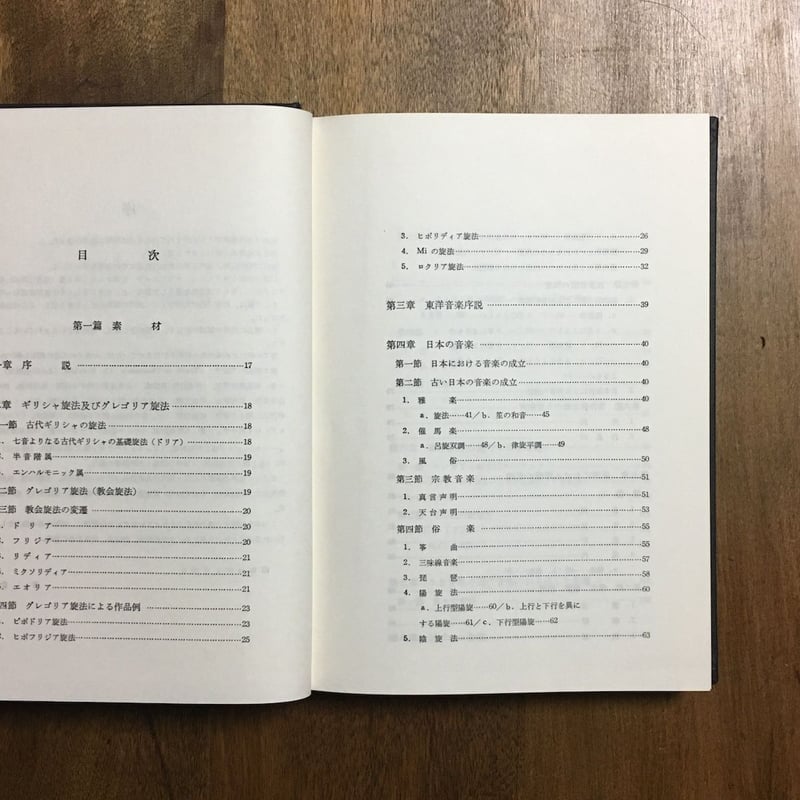 目次
第一篇 素材
章 序説……17
章 ギリシャ旋法及びグレゴリア旋法……18
一節 古代ギリシャの旋法……18
七音よりなる古代ギリシャの基礎旋法(ドリア)……18
半音階属……19
エンハルモニック属……19
二節 グレゴリア旋法(教会旋法)……19
三節 教会旋法の変遷……20
ドリア……20
フリジア……20
リディア……21
ミクソリディア……21
エオリア……21
四節 グレゴリア旋法による作品例……23
ヒポドリア旋法……23
ヒポフリジア旋法……25
3. ヒポリディア旋法……26
4. Miの旋法……29
5. ロクリア旋法……32
第三章 東洋音楽序説……39
第四章 日本の音楽……40
第一節 日本における音楽の成立……40
第二節 古い日本の音楽の成立……40
1. 雅楽……40
a. 旋法……41/b. 笙の和音……45
2. 催馬楽……48
a. 呂旋双調……48/b. 律旋平調……49
3. 風俗……50
第三節 宗教音楽……51
1. 真言声明……51
2. 天台声明……53
第四節 俗楽……55
1. 箏曲……55
2. 三味線音楽……57
3. 琵琶……58
4. 陽旋法……60
a. 上行型陽旋……60/b. 上行と下行を異に
する陽旋……61/c. 下行型陽旋……62
5. 陰旋法……63